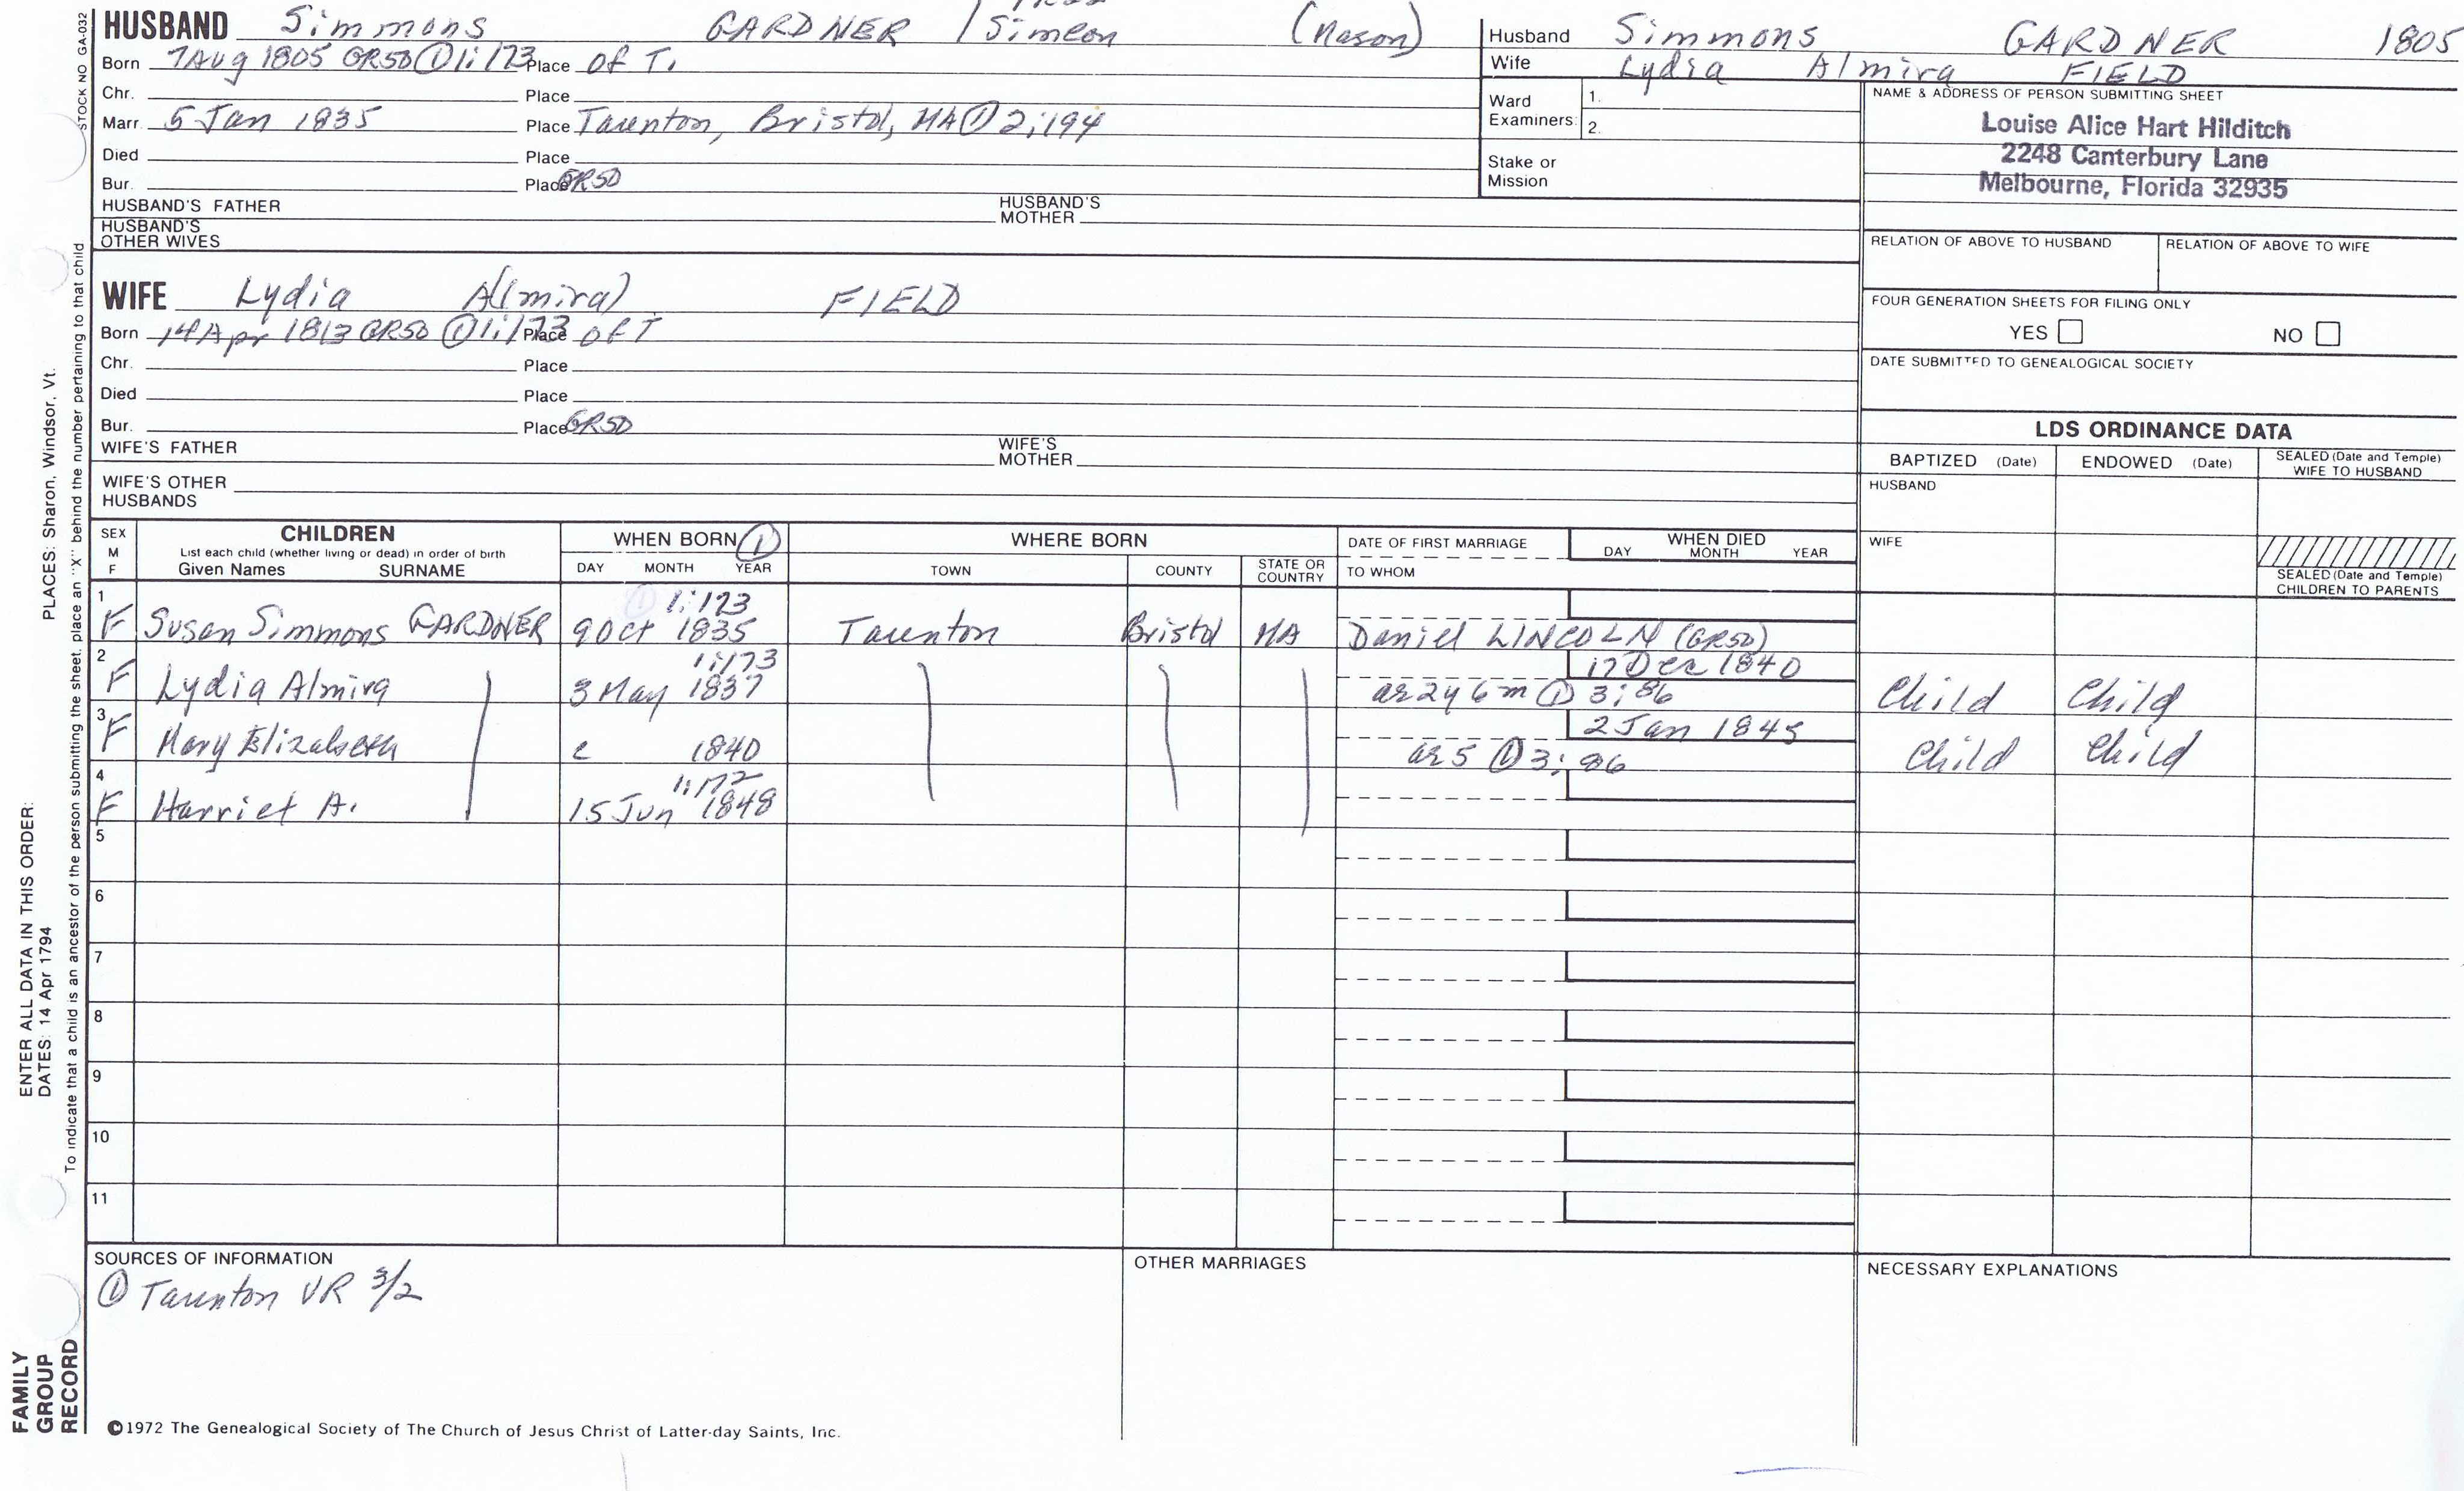 HUSBAND Simmons GARDNER / Simeon (Mason)
Born 7 Aug 1805 GR50 ① 1:173 Place of T.
Chr. Place
Marr. 5 Jan 1835 Place Taunton, Bristol, MA ① 2:194
Died Place
Bur. Place GR50
HUSBAND'S FATHER HUSBAND'S MOTHER
HUSBAND'S OTHER WIVES
Husband Simmons GARDNER 1805
Wife Lydia Almira FIELD
Ward Examiners: 1.
2.
Stake or Mission
NAME & ADDRESS OF PERSON SUBMITTING SHEET
Louise Alice Hart Hilditch
2248 Canterbury Lane
Melbourne, Florida 32935
RELATION OF ABOVE TO HUSBAND RELATION OF ABOVE TO WIFE
FOUR GENERATION SHEETS FOR FILING ONLY
YES NO
DATE SUBMITTED TO GENEALOGICAL SOCIETY
WIFE Lydia A(lmira) FIELD
Born 14 Apr 1813 GR50 ① 1:173 Place of T
Chr. Place
Died Place
Bur. Place GR50
WIFE'S FATHER WIFE'S MOTHER
WIFE'S OTHER HUSBANDS
LDS ORDINANCE DATA
BAPTIZED (Date) ENDOWED (Date) SEALED (Date and Temple) WIFE TO HUSBAND
HUSBAND
WIFE
SEALED (Date and Temple) CHILDREN TO PARENTS
SEX M F
CHILDREN
List each child (whether living or dead) in order of birth
Given Names SURNAME
WHEN BORN ①
DAY MONTH YEAR
WHERE BORN
TOWN COUNTY STATE OR COUNTRY
DATE OF FIRST MARRIAGE
TO WHOM
WHEN DIED
DAY MONTH YEAR
1 1:173
F Susan Simmons GARDNER 9 Oct 1835 Taunton Bristol MA Daniel LINCOLN (GR50)
2 1:173 17 Dec 1840
F Lydia Almira 3 May 1837 ae 2y 6m ① 3:86 Child Child
3 2 Jan 1845
F Mary Elizabeth c 1840 ae 5 ① 3:86 Child Child
4 1:172
F Harriet A. 15 Jun 1848
5
6
7
8
9
10
11
SOURCES OF INFORMATION
① Taunton VR 3/2
OTHER MARRIAGES
NECESSARY EXPLANATIONS
©1972 The Genealogical Society of The Church of Jesus Christ of Latter-day Saints, Inc.
STOCK NO GA-032
To indicate that a child is an ancestor of the person submitting the sheet, place an "X" behind the number pertaining to that child
ENTER ALL DATA IN THIS ORDER:
DATES: 14 Apr 1794 PLACES: Sharon, Windsor, Vt.
FAMILY
GROUP
RECORD